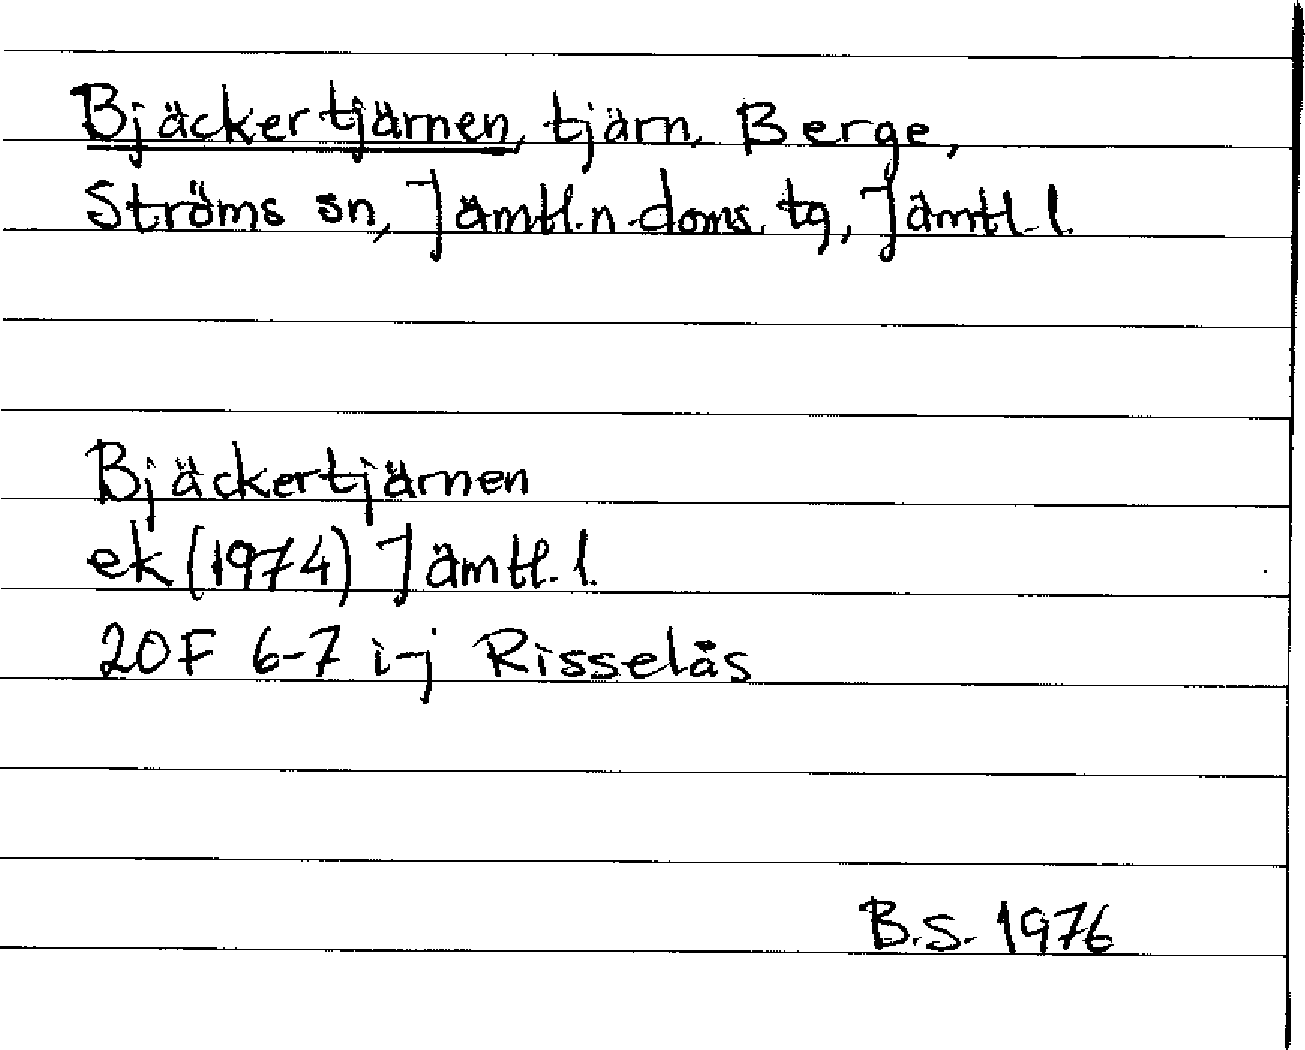 Bjäckertjärnen, tjärn, Berge,
Ströms sn, Jämtl.n.doms. tg, Jämtl. l.
Bjäckertjärnen
ek (1974) Jämtl. l.
20F 6-7 i-j Risselås
B.S. 1976